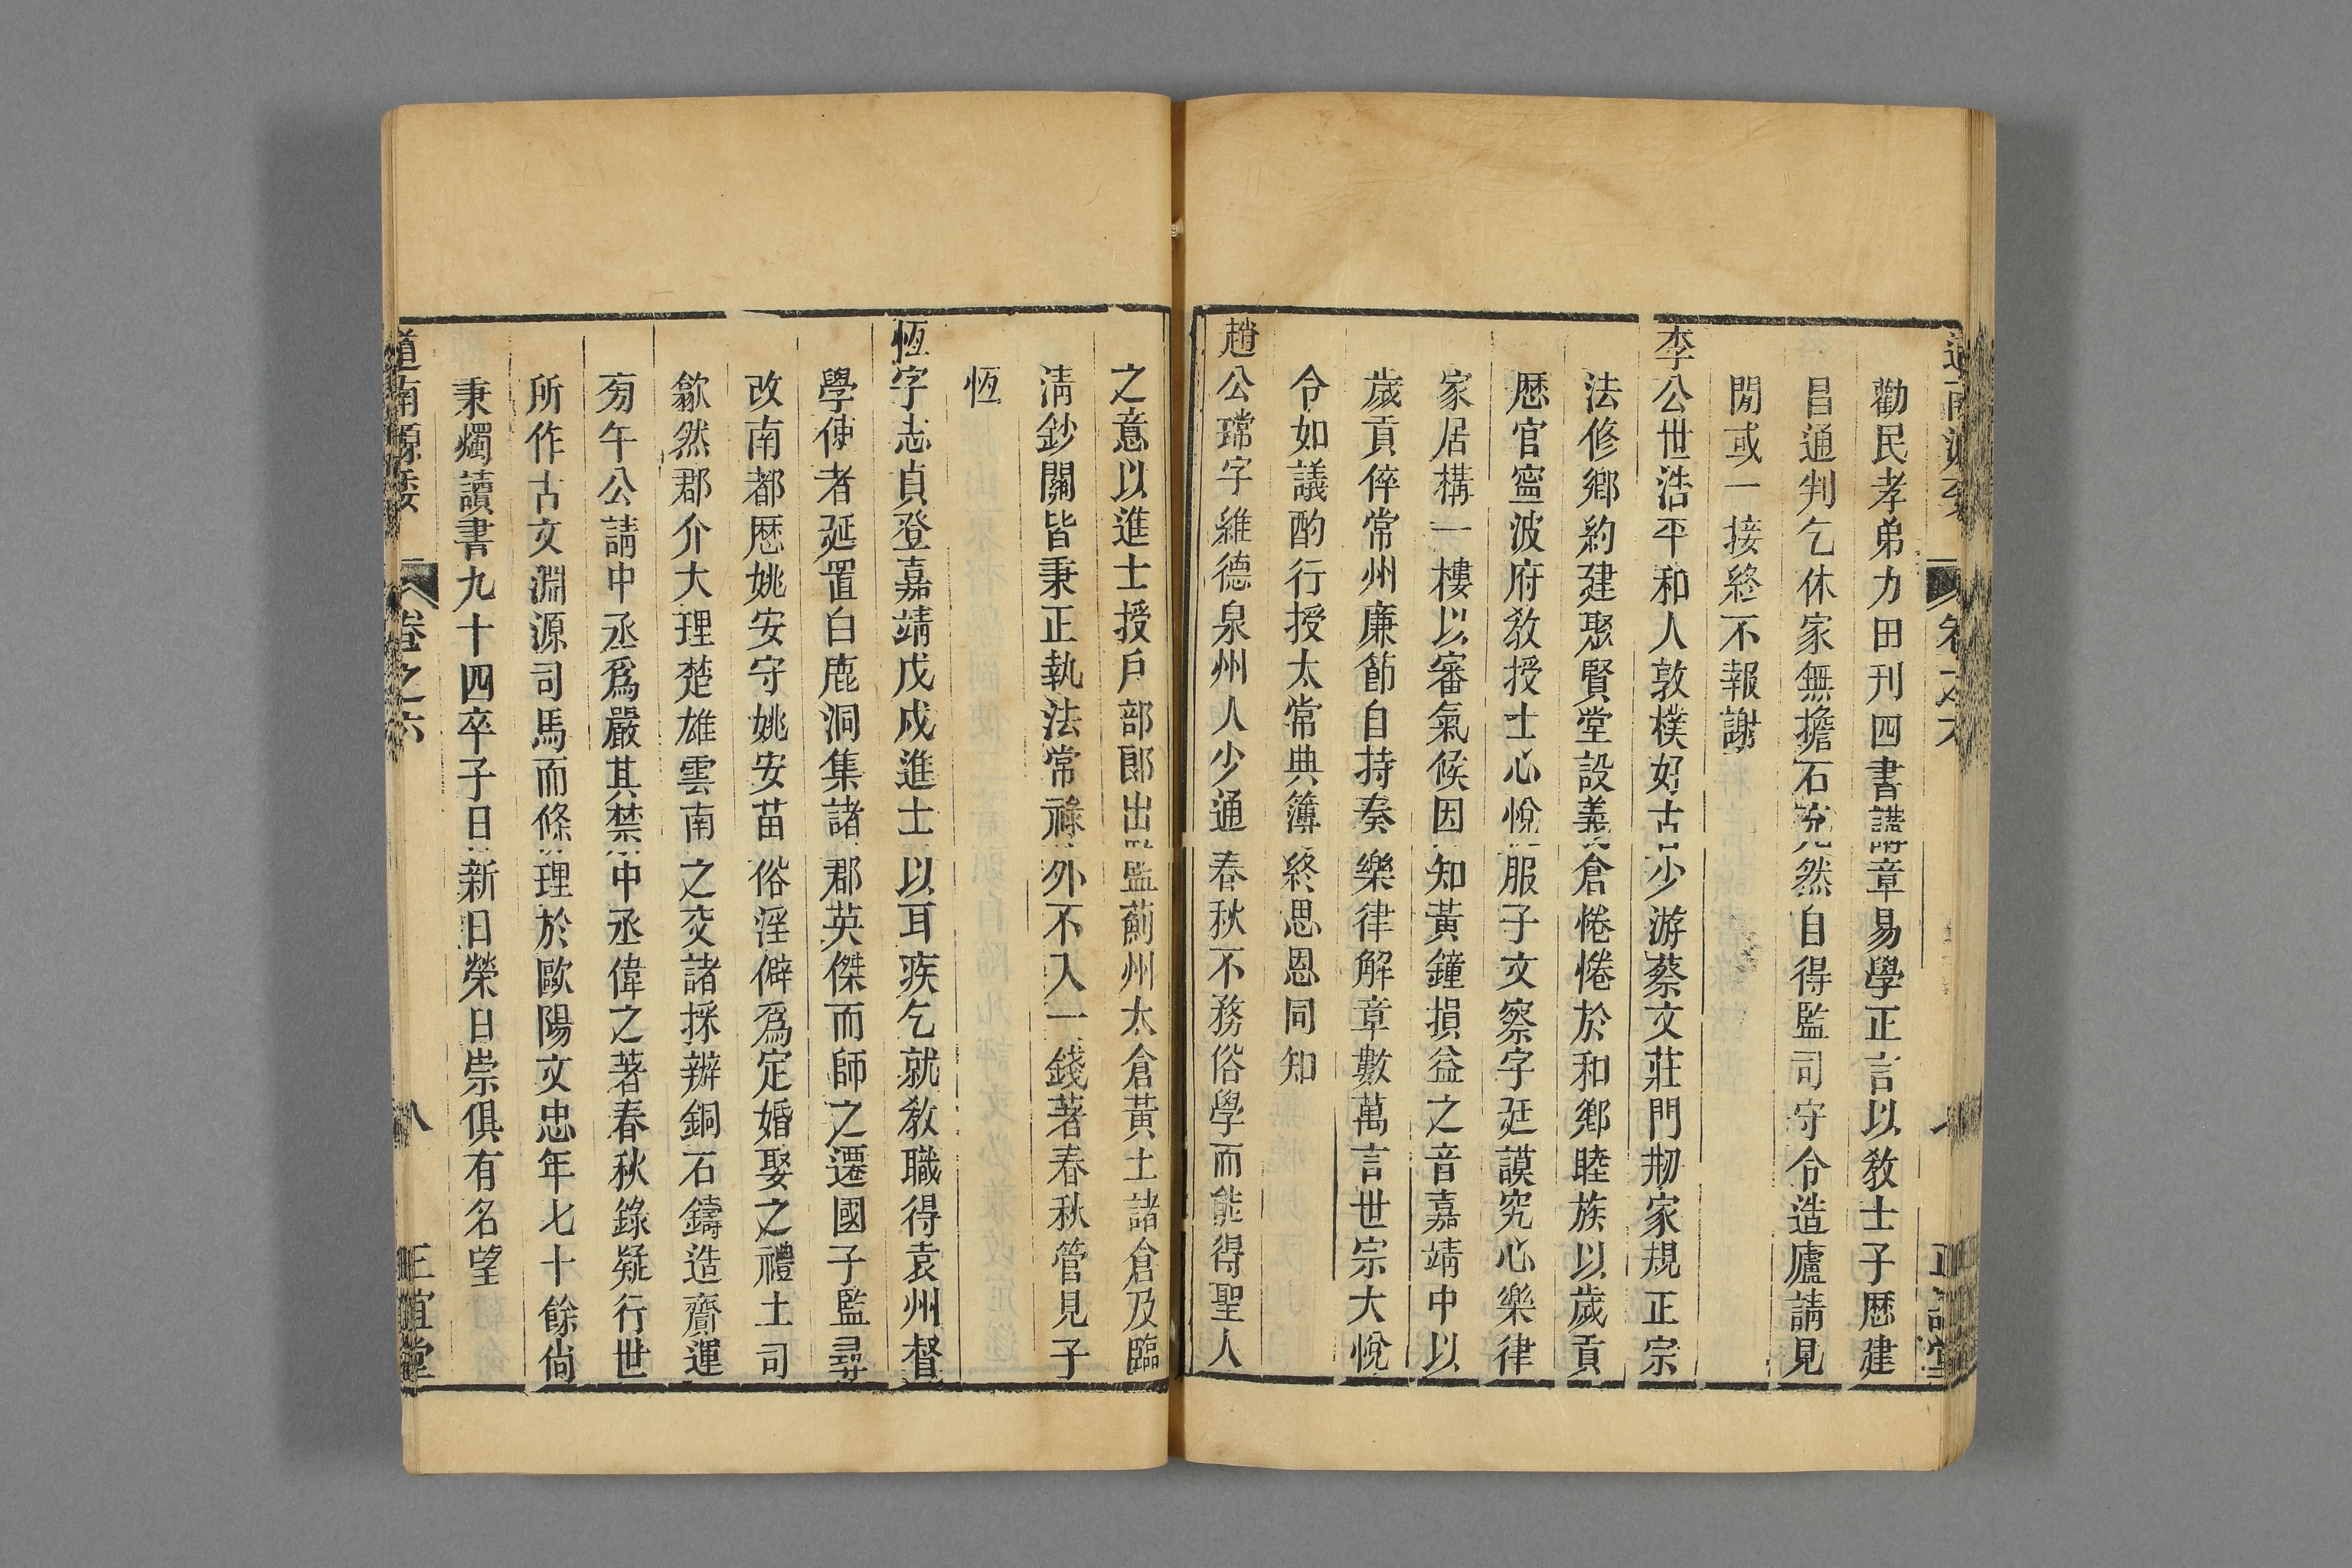 勸民孝弟力田刊四書講章易學正言以敎士子歷建
昌通判乞休家無擔石充然自得監司守令造廬請見
閒或一接終不報謝
李公世浩平和人敦樸好古少游蔡文莊門刱家規正宗
法修鄉約建聚賢堂設義倉惓惓於和鄉睦族以歲貢
歷官寧波府敎授士心悅服子文察字廷謨究心樂律
家居構一樓以審氣候因知黃鐘損益之音嘉靖中以
歲貢倅常州廉節自持奏樂律解章數萬言世宗大悅
令如議酌行授太常典簿終思恩同知
趙公瑺字維德泉州人少通春秋不務俗學而能得聖人
之意以進士授戶部郞出監薊州太倉黃土諸倉及臨
淸鈔關皆秉正執法常祿外不入一錢著春秋管見子
恆
恆字志貞登嘉靖戊戌進士以耳疾乞就敎職得袁州督
學使者延置白鹿洞集諸郡英傑而師之遷國子監尋
改南都歷姚安守姚安苗俗淫僻爲定婚娶之禮土司
歙然郡介大理楚雄雲南之交諸採辦銅石鑄造齎運
旁午公請中丞爲嚴其禁中丞偉之著春秋錄疑行世
所作古文淵源司馬而條理於歐陽文忠年七十餘尙
秉燭讀書九十四卒子日新日榮日崇俱有名望
道南源委 卷之六 八 正誼堂